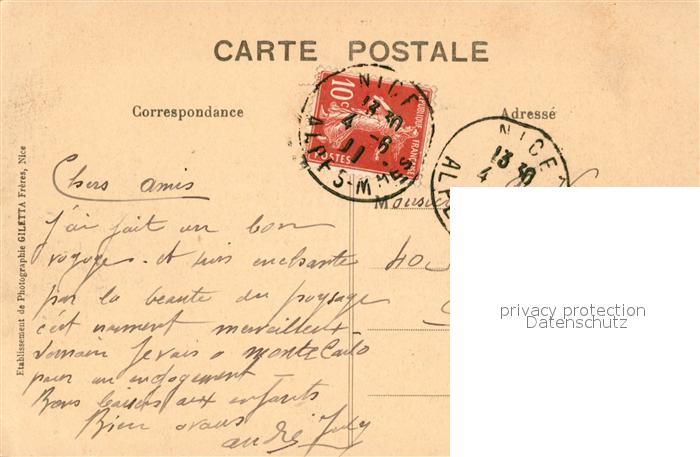 CARTE POSTALE
Correspondance
Adressé
NICE
13 30
4 - 6
11
ALPES-MMES
10c
POSTES
NICE
13 30
4
ALPE
Etablissement de Photographie GILETTA Frères, Nice
Chers amis
J'ai fait un bon
voyage - et suis enchanté
par la beauté du paysage
c'est vraiment merveilleux -
demain je vais a monte Carlo
pour un engagement -
Bons baisers aux enfants
Bien a vous
andré
Monsieur
40
privacy protection
Datenschutz